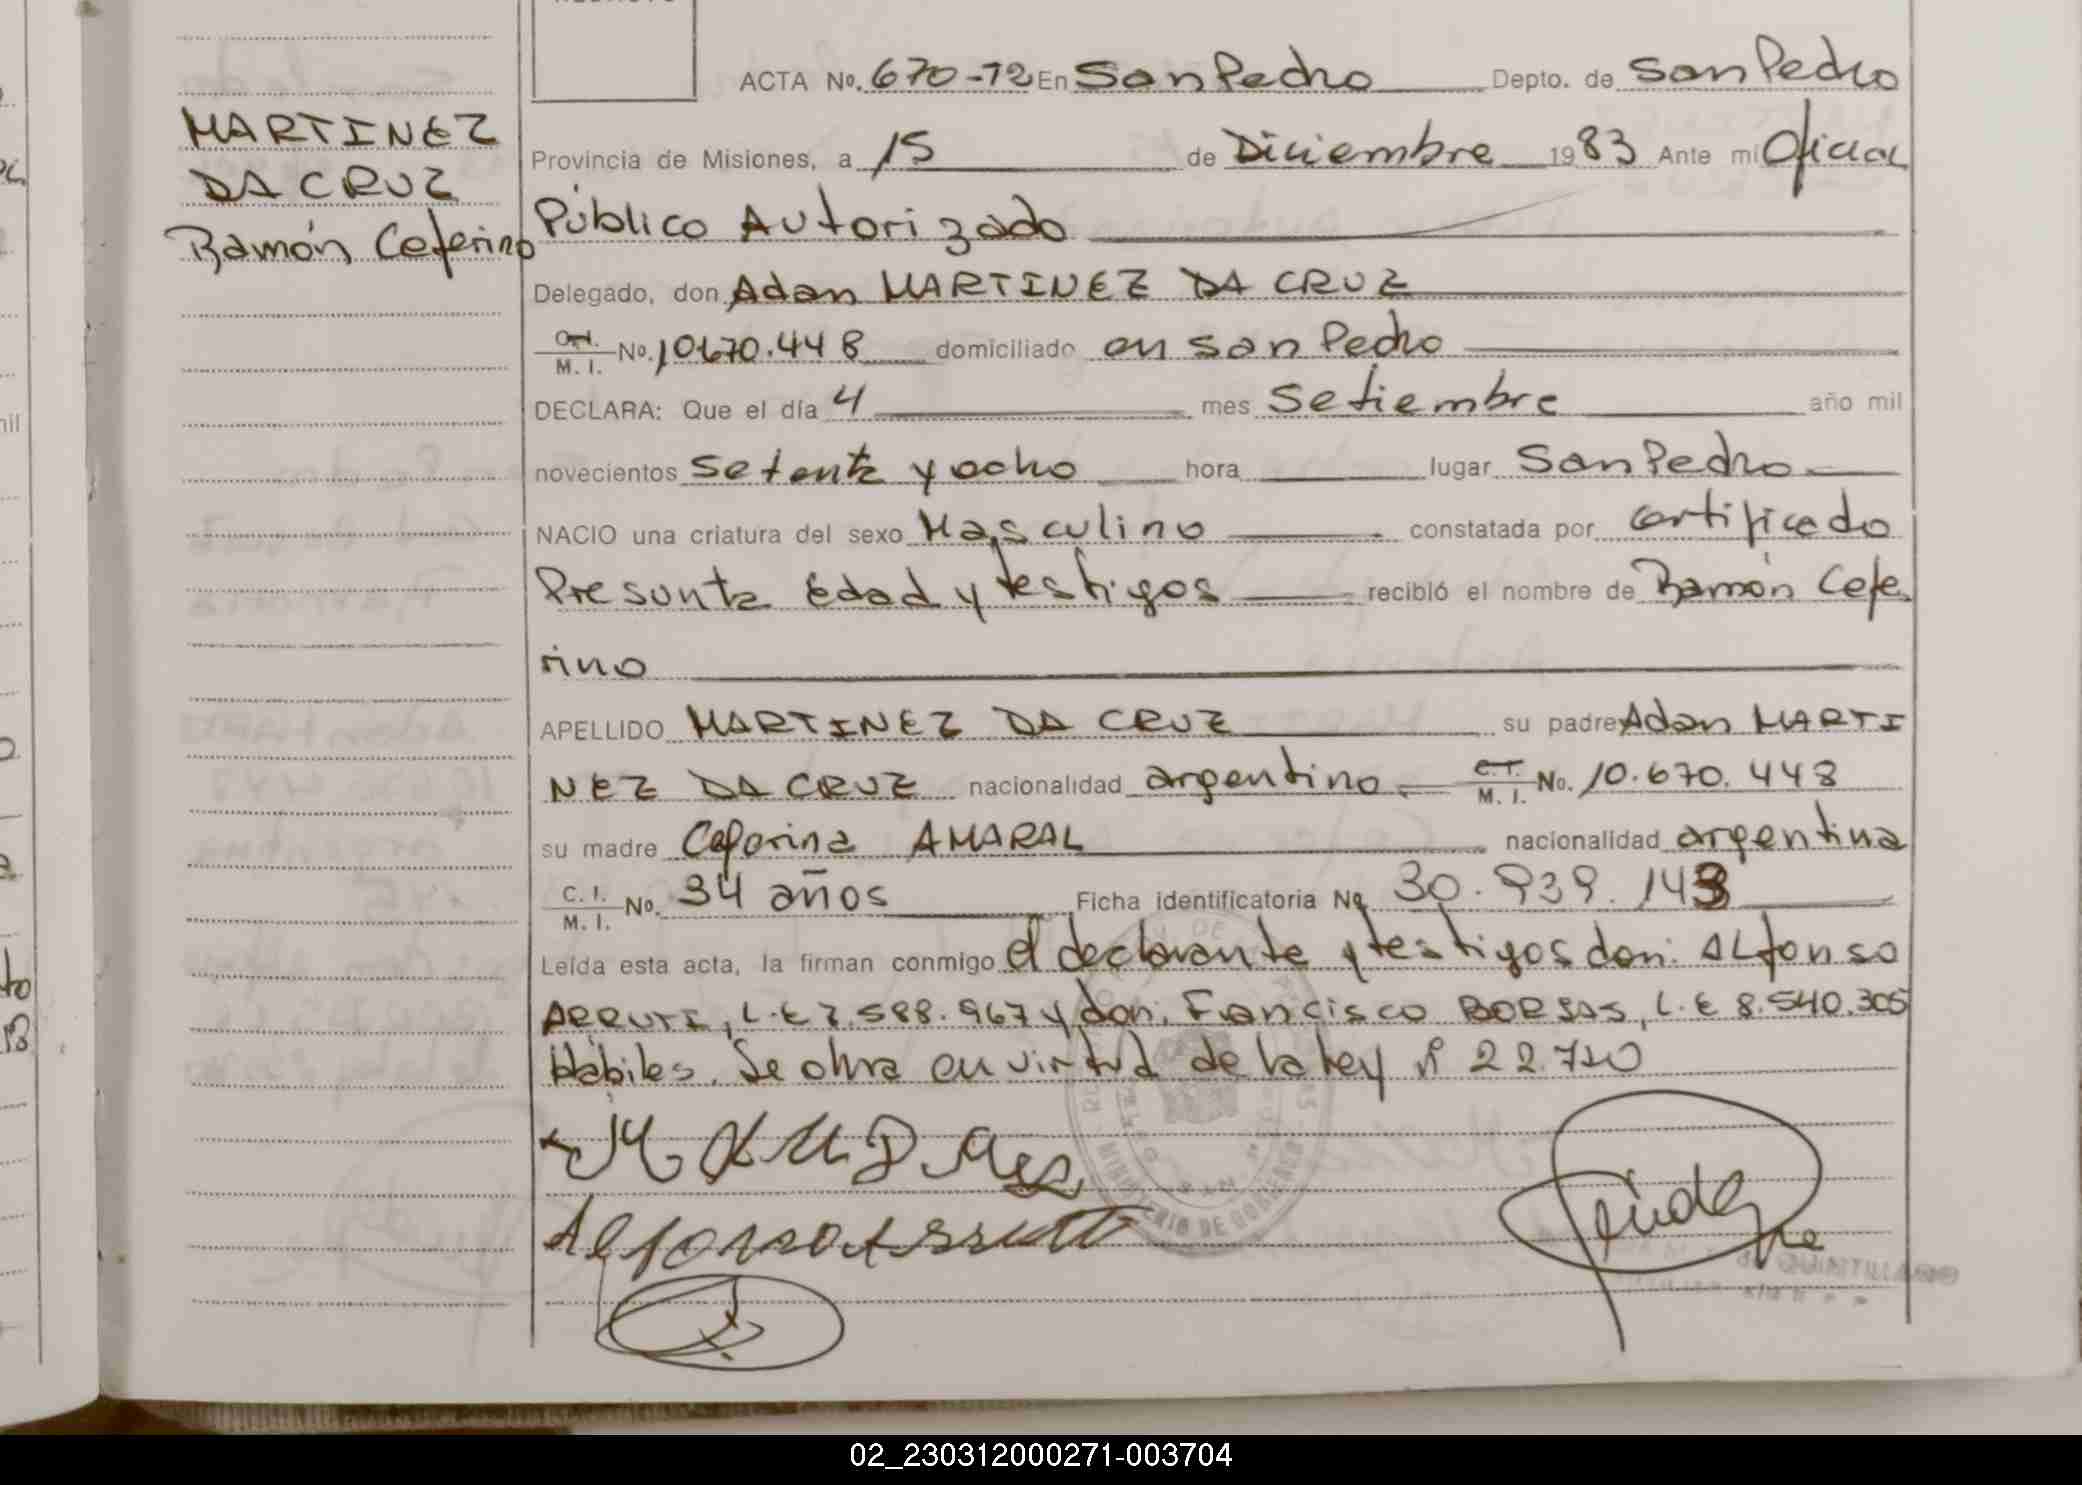 ACTA No. 670-72 En San Pedro Depto. de San Pedro
MARTINEZ
DA CRUZ
Ramón Ceferino
Provincia de Misiones, a 15 de Diciembre 1983 Ante mí Oficial
Público Autorizado
Delegado, don Adan MARTINEZ DA CRUZ
M. I. No. 10670.448 domiciliado en San Pedro
DECLARA: Que el día 4 mes Setiembre año mil
novecientos Setenta y ocho hora lugar San Pedro
NACIO una criatura del sexo Masculino constatada por certificado
Presunta Edad y testigos recibió el nombre de Ramón Cefe
rino
APELLIDO MARTINEZ DA CRUZ su padre Adan MARTI
NEZ DA CRUZ nacionalidad argentino C.I. M. I. No. 10.670.448
su madre Ceferina AMARAL nacionalidad argentina
C. I. M. I. No. 34 años Ficha identificatoria No 30.939.143
Leída esta acta, la firman conmigo el declarante y testigos don: ALfonso
ARRUTI, L.E 7.588.967 y don: Francisco BORJAS, L.E 8.540.305
Hábiles. Se obra en virtud de la ley nº 22.710
MINISTERIO DE GOBIERNO
Alfonso Arruti
de QUINTILLANO
02_230312000271-003704